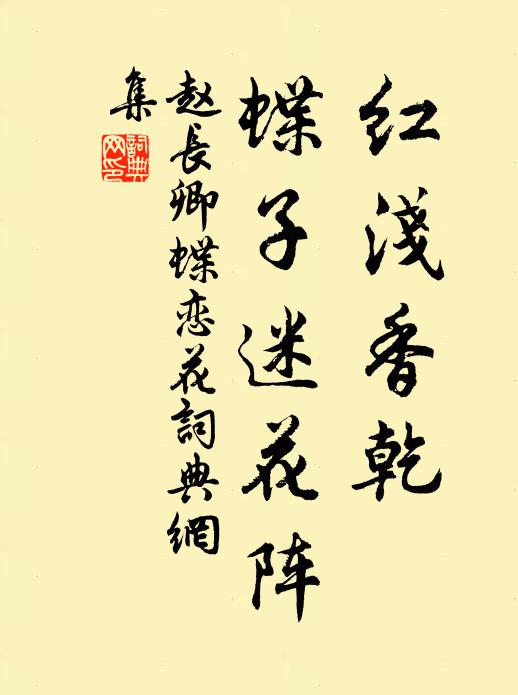 红淺香乾
蝶子迷花阵
赵長卿蝶恋花詞典網
集
詞典
网印